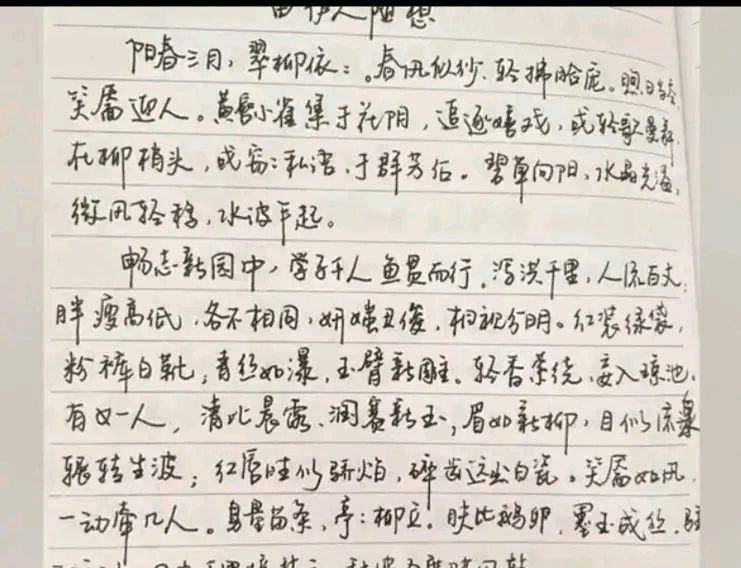 阳春三月，翠柳依：。春风似纱，轻拂脸庞。照日当空，
笑靥迎人。黄髻小雀集于花阴，追逐嬉戏，或轻歌曼舞，
在柳梢头，或窃：私语，于群芳后。碧草向阳，水晶光溢，
微风轻移，水波平起。
畅志新园中，学子千人鱼贯而行。泻洪千里，人流百丈，
胖瘦高低，各不相同，妍媸丑俊，相视分明。红装绿袋，
粉裤白靴，青丝如瀑，玉臂新雕。轻香萦绕，妄入琼池，
有女一人，清比晨露，润赛新玉，眉如新柳，目似流泉
辗转生波；红唇旺似骄焰，碎齿这出白瓷。笑靥如风，
一动牵几人。身量苗条，亭：柳立。肤比鹅卵，墨玉成丝，